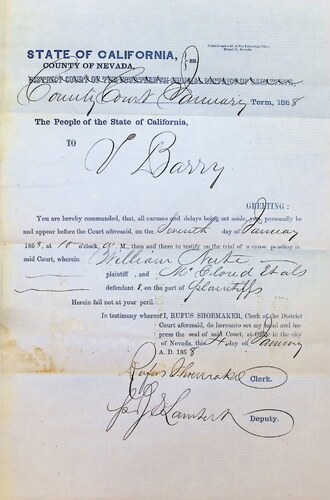 STATE OF CALIFORNIA,
COUNTY OF NEVADA, } ss
County Court January Term, 1858
The People of the State of California,
TO
V Barry
GREETING:
You are hereby commanded, that, all excuses and delays being set aside, you personally be
and appear before the Court aforesaid, on the Seventh day of January
1858, at 10 o'clock, a. M., then and there to testify on the trial of a cause pending in
said Court, wherein William
plaintiff, and McCloud Et als
defendant s, on the part of Plaintiffs
Herein fail not at your peril.
In testimony whereof I, RUFUS SHOEMAKER, Clerk of the District
Court aforesaid, do hereunto set my hand and im-
press the seal of said Court, at Office in the city
of Nevada, this 4 day of January
A. D. 1858
Rufus Shoemaker Clerk.
Lambert Deputy.